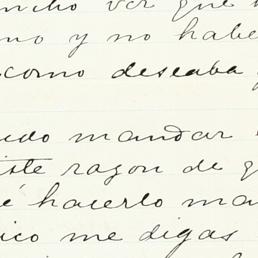 ncho ver que
mo y no habe
como deseaba
udo mandar
iste razon de q
é hacerlo ma
ico me digas